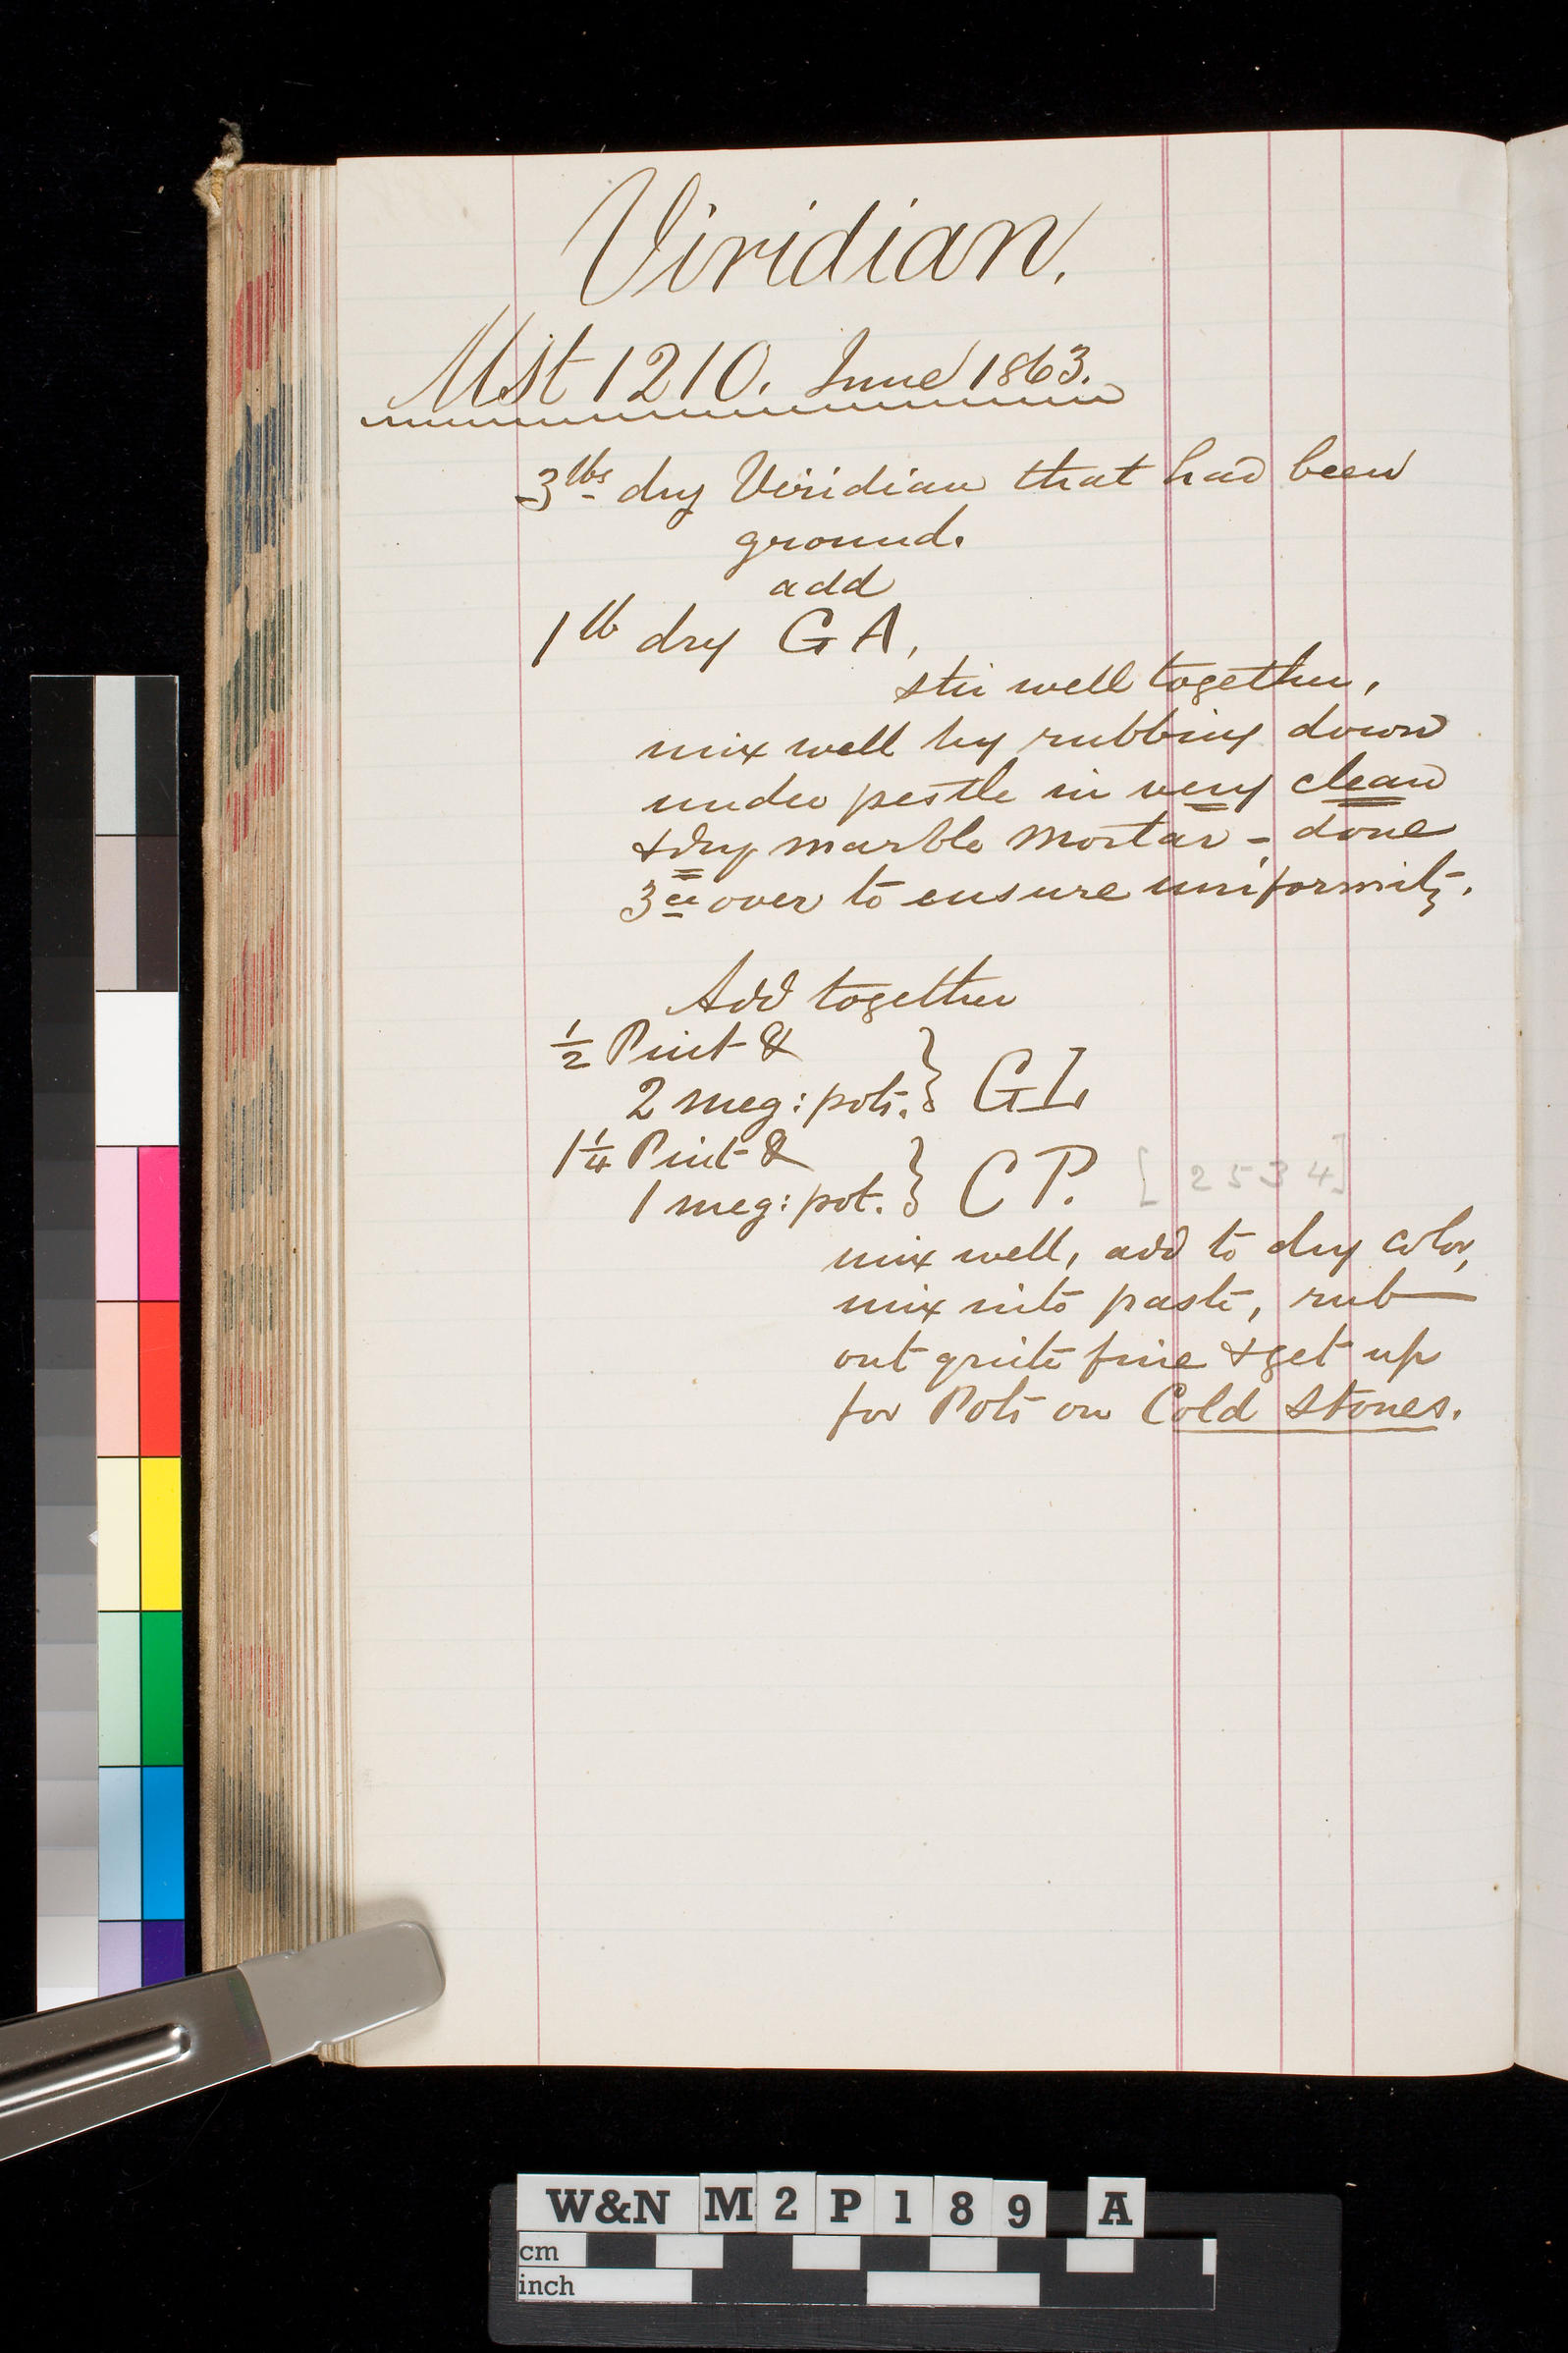 Viridian.
Mst 1210. June 1863.
3lbs dry Viridian that had been
ground.
add
1lb dry GA,
stir well together,
mix well by rubbing down
under pestle in very clean
& dry marble mortar - done
3ce over to ensure uniformity.
Add together
1/2 Pint &
2 meg: pots. } GL
1 1/4 Pint &
1 meg: pot. } CP. [2534]
mix well, add to dry color,
mix into paste, rub
out quite fine & get up
for Pots on Cold Stones.
W&N M2P189 A
cm
inch